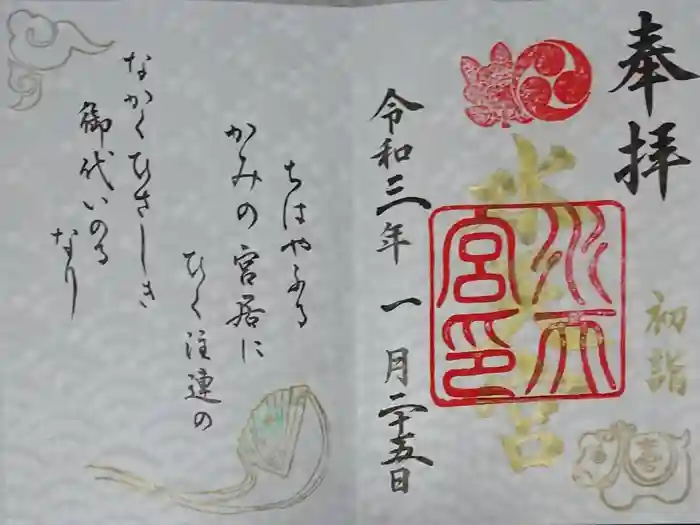 奉拝
初詣
水天宮
水天宮印
令和三年一月二十五日
ちはやふる
かみの宮居に
ひく注連の
なかくひさしき
御代いのる
なり